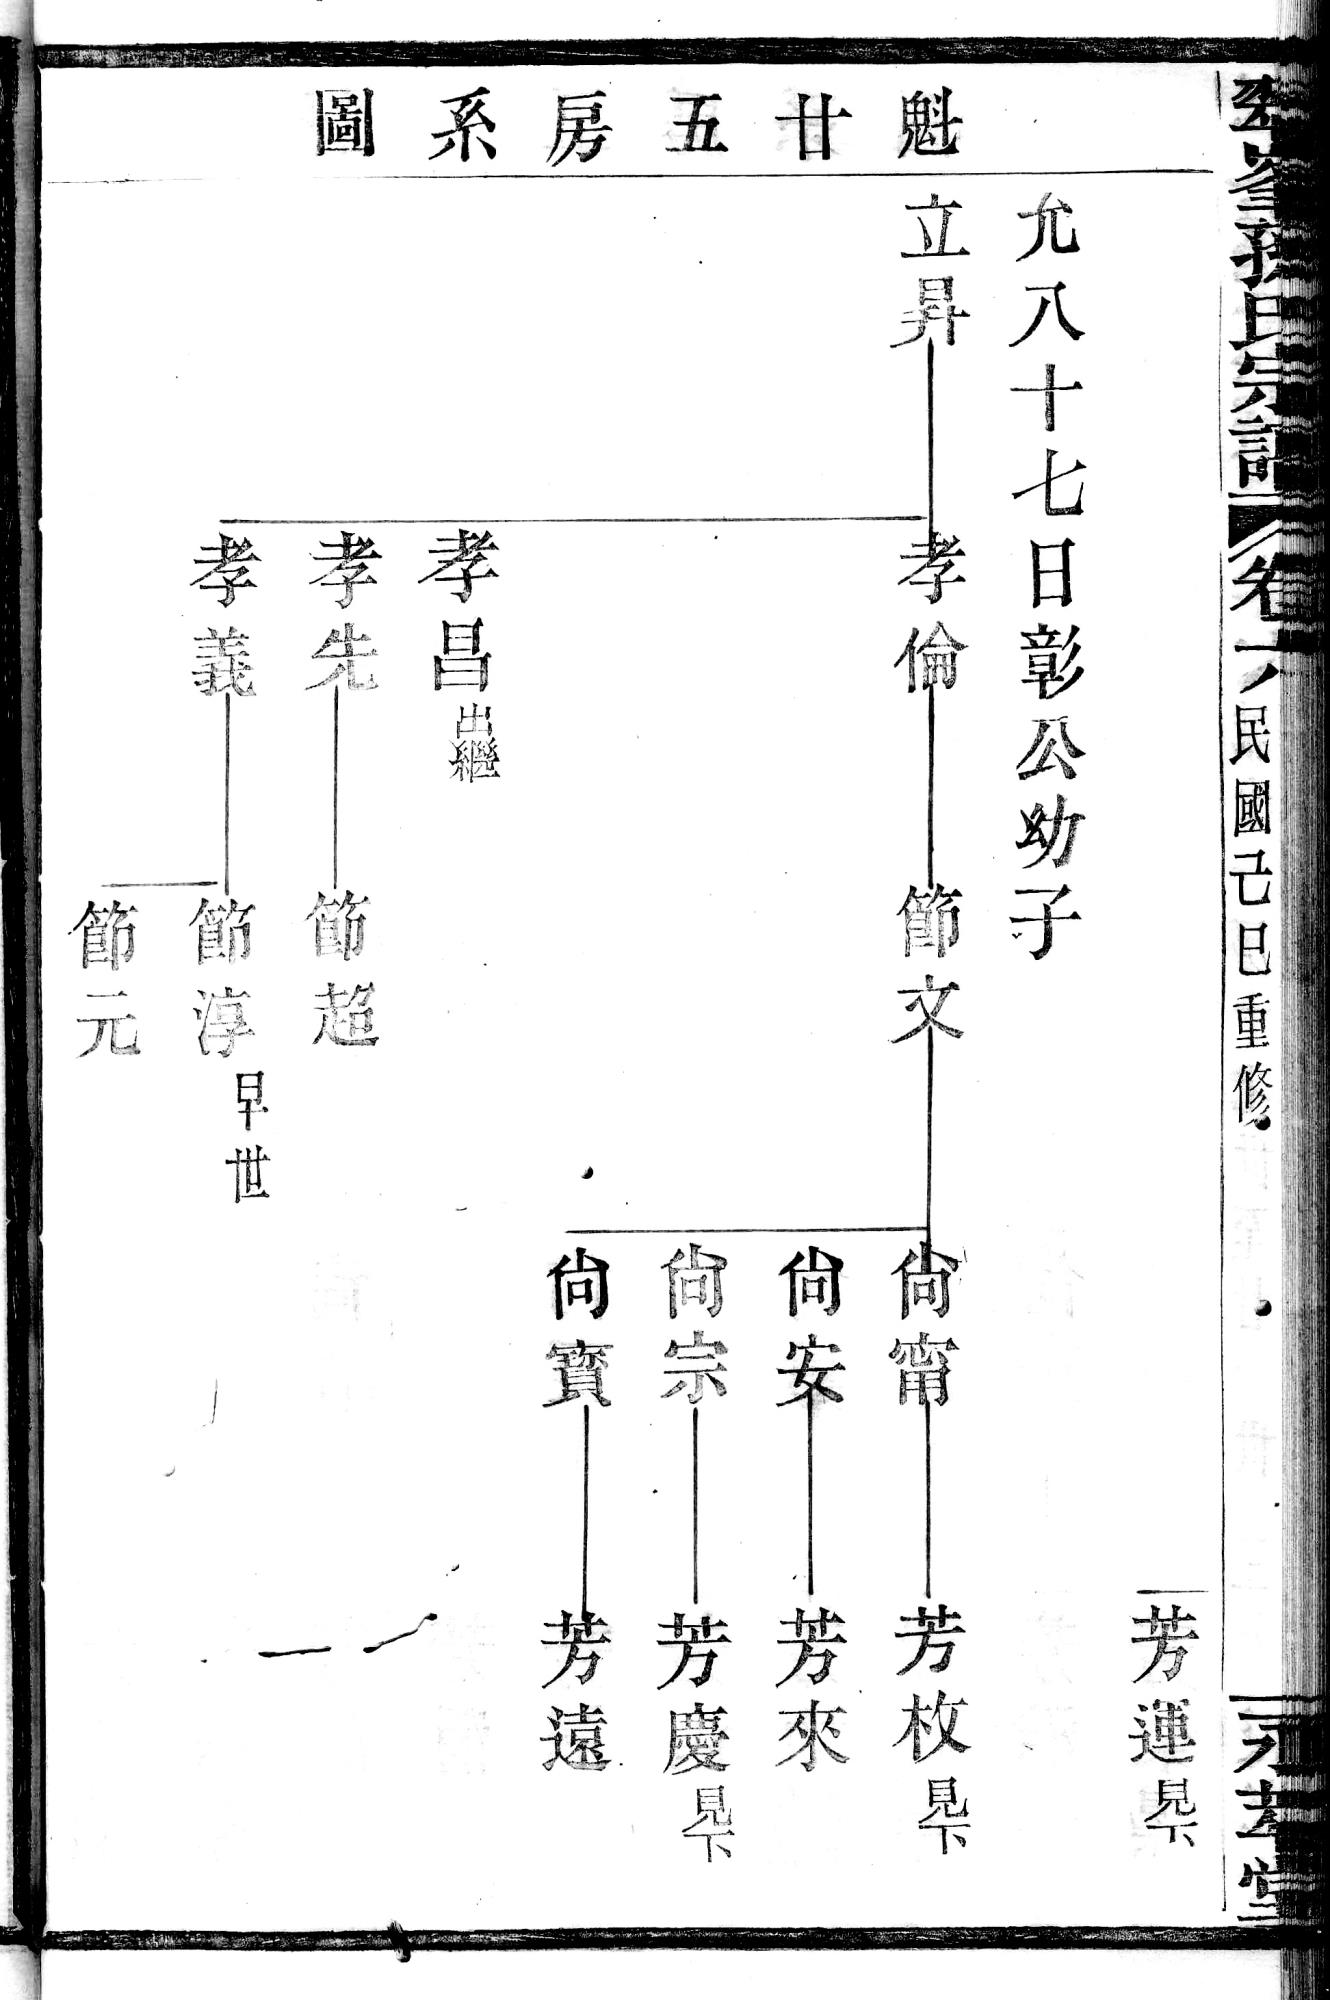 孫氏宗譜
卷六
民國己巳重修
魁廿五房系圖
芳運見下
允八十七日彰公幼子
立昇
孝倫
節文
尙甯
芳枚見下
尙安
芳來
尙宗
芳慶見下
尙寳
芳遠
孝昌出繼
孝先
節超
孝義
節淳早世
節元